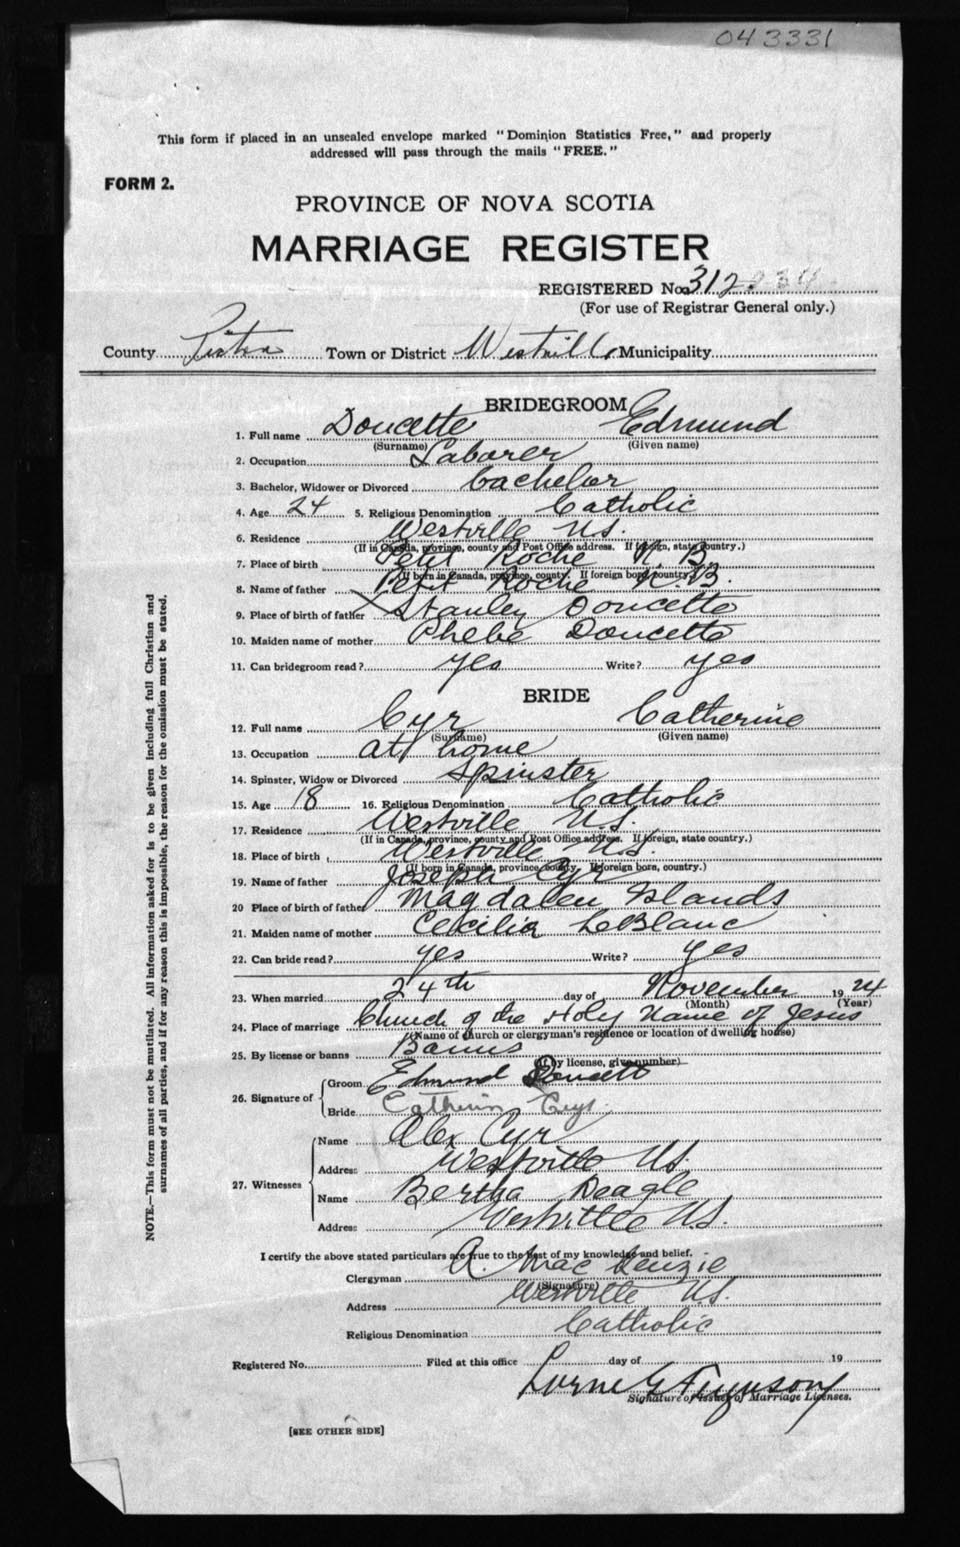 043331
This form if placed in an unsealed envelope marked "Dominion Statistics Free," and properly
addressed will pass through the mails "FREE."
FORM 2.
PROVINCE OF NOVA SCOTIA
MARRIAGE REGISTER
REGISTERED No. 312
(For use of Registrar General only.)
County Pictou Town or District Westville Municipality
BRIDEGROOM
1. Full name Doucette Edmund
(Surname) (Given name)
2. Occupation Laborer
3. Bachelor, Widower or Divorced bachelor
4. Age 24 5. Religious Denomination Catholic
6. Residence Westville N.S.
(If in Canada, province, county and Post Office address. If foreign, state country.)
7. Place of birth Petit Roche N.B.
(If born in Canada, province, county. If foreign born, country.)
8. Name of father Petit Roche N.B.
9. Place of birth of father Stanley Doucette
10. Maiden name of mother Phebe Doucette
11. Can bridegroom read? yes Write? yes
BRIDE
12. Full name Cyr Catherine
(Surname) (Given name)
13. Occupation at home
14. Spinster, Widow or Divorced Spinster
15. Age 18 16. Religious Denomination Catholic
17. Residence Westville N.S.
(If in Canada, province, county and Post Office address. If foreign, state country.)
18. Place of birth Westville N.S.
(If born in Canada, province, county. If foreign born, country.)
19. Name of father Joseph Cyr
20 Place of birth of father Magdalen Islands
21. Maiden name of mother Cecilia LeBlanc
22. Can bride read? yes Write? yes
23. When married 24th day of November 1924
(Month) (Year)
24. Place of marriage Church of the Holy Name of Jesus
(Name of church or clergyman's residence or location of dwelling house)
25. By license or banns Banns
(If by license, give number)
26. Signature of Groom Edmund Doucett
Bride Catherin
27. Witnesses Name Alex Cyr
Address Westville N.S.
Name Bertha Deagle
Address Westville N.S.
I certify the above stated particulars are true to the best of my knowledge and belief.
Clergyman A. MacKenzie
(Signature)
Address Westville N.S.
Religious Denomination Catholic
Registered No. Filed at this office day of 19
Lorne G Ferguson
Signature of Issuer of Marriage Licenses.
[SEE OTHER SIDE]
NOTE.—This form must not be mutilated. All information asked for is to be given including full Christian and
surnames of all parties, and if for any reason this is impossible, the reason for the omission must be stated.